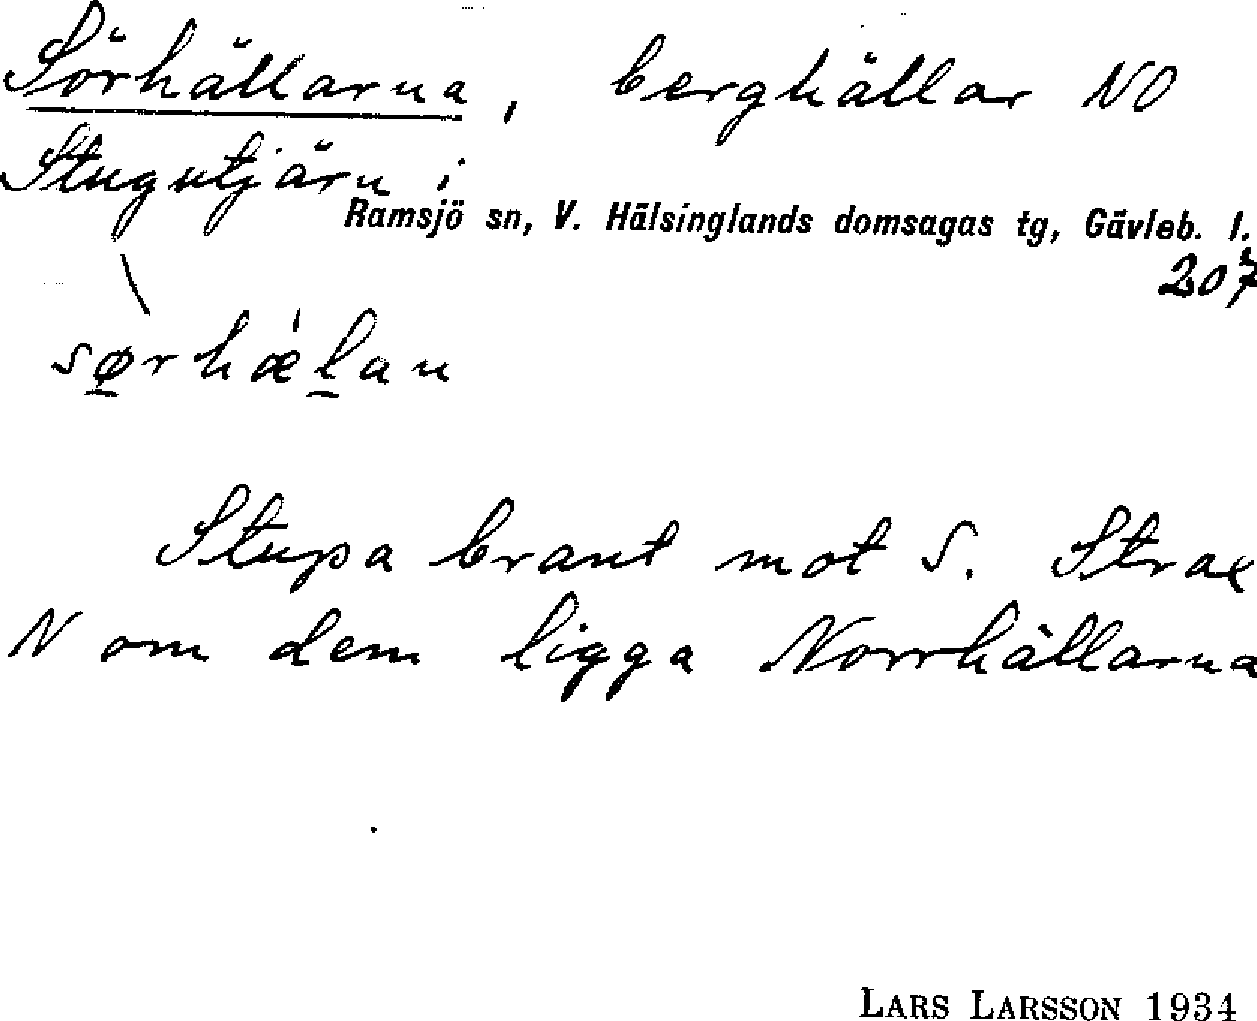 Sörhällarna, berghällar NO
Stugutjärn i
Ramsjö sn, V. Hälsinglands domsagas tg, Gävleb. l.
207
sø̱rhæḻan
Stupa brant mot S. Strax
N om dem ligga Norrhällarna
LARS LARSSON 1934